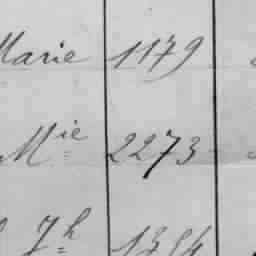 Marie 1179
Mie 2273
Jh 1354